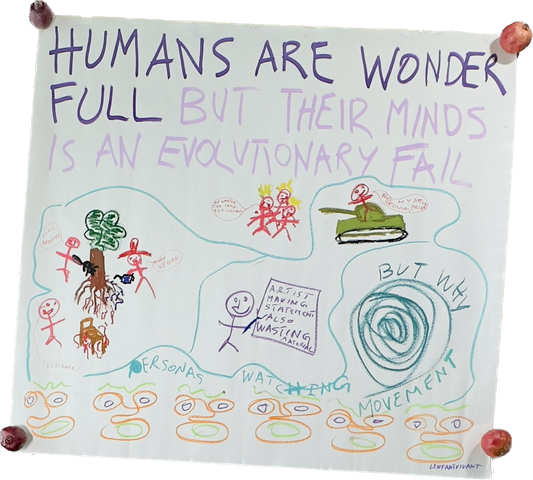 HUMANS ARE WONDER
FULL BUT THEIR MINDS
IS AN EVOLUTIONARY FAIL
VEGAN
BUT WHY
ARTIST
MAKING
STATEMENT
ALSO
WASTING
MATERIAL
PERSONAS WATCHING
MOVEMENT